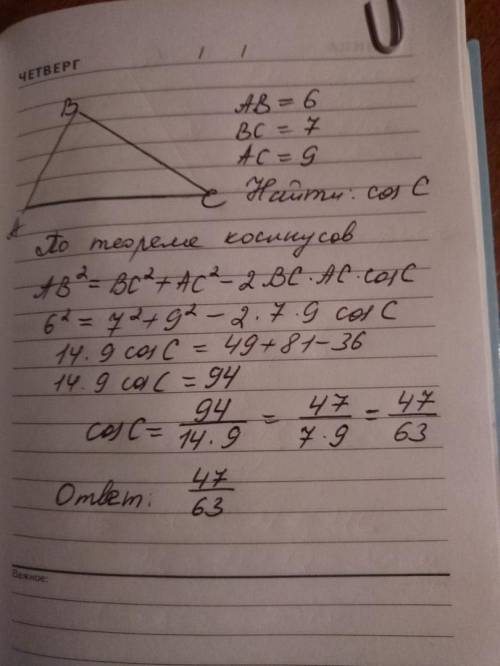 ЧЕТВЕРГ
B
AB = 6
BC = 7
AC = 9
A
C
Найти: cos C
По теореме косинусов
AB² = BC² + AC² − 2 BC · AC · cos C
6² = 7² + 9² − 2 · 7 · 9 cos C
14 · 9 cos C = 49 + 81 − 36
14 · 9 cos C = 94
cos C = 94/14 · 9 = 47/7 · 9 = 47/63
Ответ: 47/63
Важное: